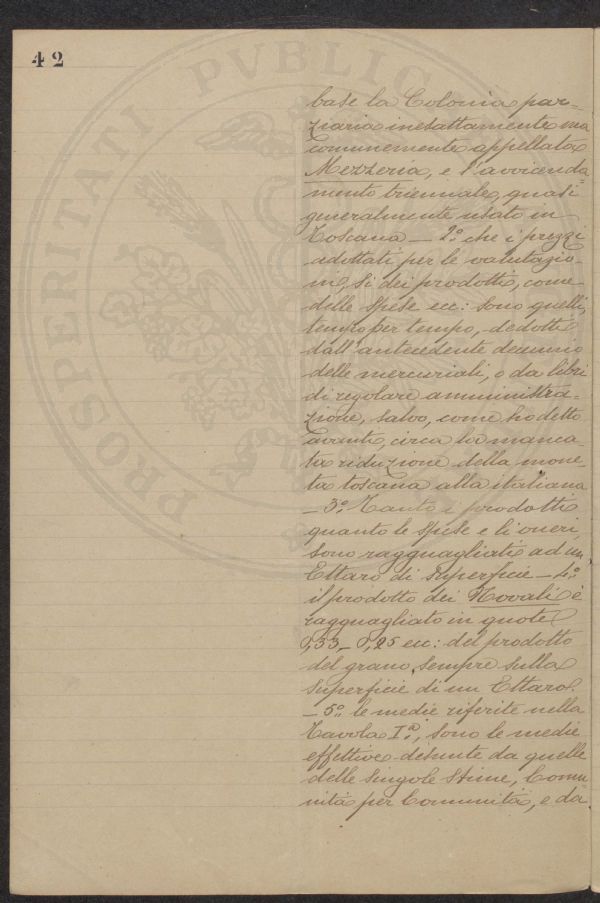 42
PROSPERITATI PVBLICAE
base la Colonia par=
ziaria inesattamente ma
comunemente appellata
Mezzeria, e l'avvicenda=
mento triennale, quasi
generalmente usato in
Toscana — 2.° che i prezzi
adottati per le valutazio-
ni, sì dei prodotti, come
delle spese ecc: sono quelli,
tempo per tempo, dedotti
dall'antecedente decennio
delle mercuriali, o da libri
di regolare amministra=
zione, salvo, come ho detto
avanti, circa la manca-
ta riduzione della mone-
ta toscana alla italiana
— 3.° Tanto i prodotti
quanto le spese e li oneri,
sono ragguagliati ad un
Ettaro di superficie — 4.°
il prodotto dei Novali è
ragguagliato in quote
0,33 — 0,25 ecc: del prodotto
del grano, sempre sulla
superficie di un Ettaro.
— 5.° le medie riferite nella
Tavola I.ª, sono le medie
effettive desunte da quelle
delle singole stime, Comu
nità per Comunità, e da